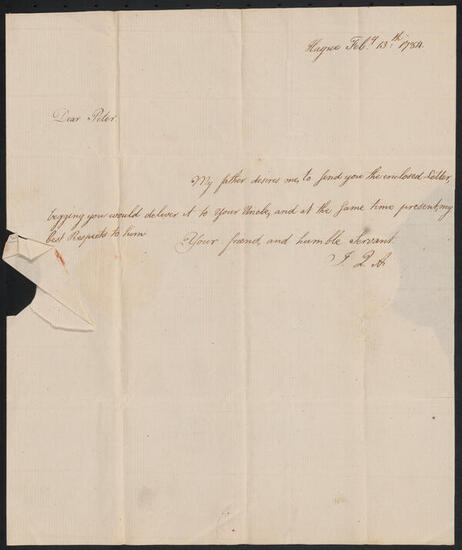 Hague Feby 13.th 1784.
Dear Peter.
My father desires me, to send you the enclosed Letter,
begging you would deliver it to Your Uncle, and at the same time present, my
best Respects to him
Your friend, and humble Servant.
J. Q A.